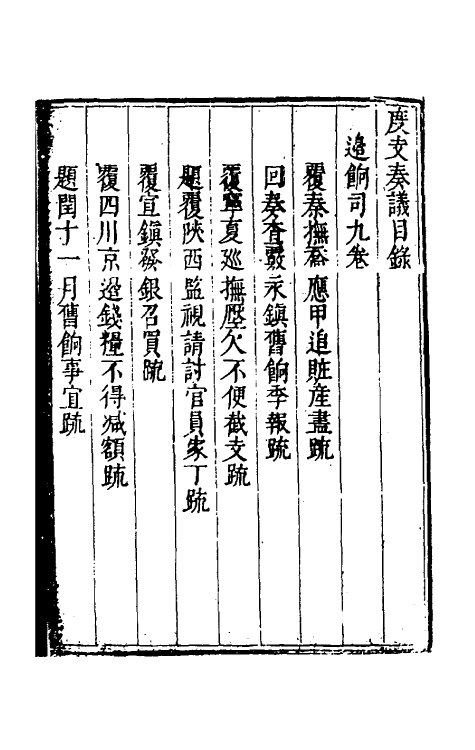 度支奏議目錄
邊餉司九卷
覆秦撫參應甲追賍産盡疏
回奏查覈永鎮舊餉季報疏
覆寧夏巡撫歷欠不便截支疏
題覆陝西監視請討官員家丁疏
覆宣鎮發銀召買疏
覆四川京邊錢糧不得减額疏
題閏十一月舊餉事宜疏